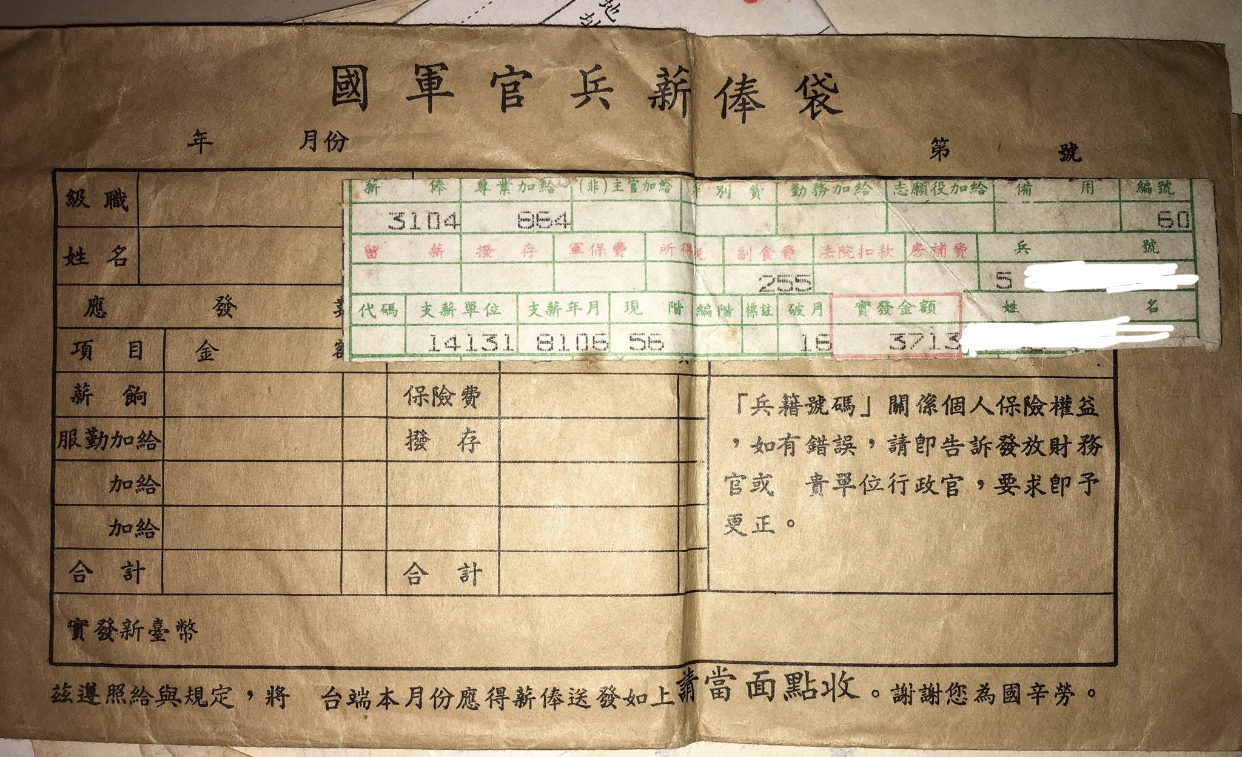 地
國軍官兵薪俸袋
年 月份 第 號
級職
薪俸 專業加給 (非)主官加給 別費 勤務加給 志願役加給 備用 編號
3104 884 60
姓名
留薪 撥存 軍保費 所得稅 副食費 法院扣款 房補費 兵號
255 5
應發
代碼 支薪單位 支薪年月 現階 編階 標註 破月 實發金額 姓名
14131 8106 56 16 3713
項目 金額
薪餉 保險費
服勤加給 撥存
加給
加給
合計 合計
「兵籍號碼」關係個人保險權益
,如有錯誤,請即告訴發放財務
官或 貴單位行政官,要求即予
更正。
實發新臺幣
茲遵照給與規定,將 台端本月份應得薪俸送發如上請當面點收。謝謝您為國辛勞。